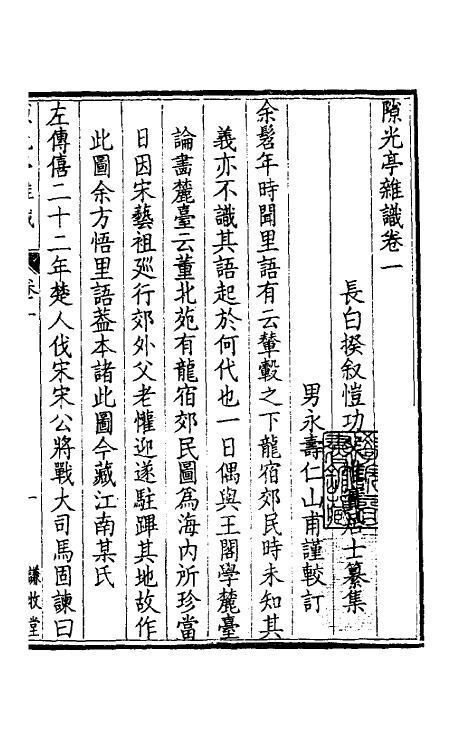 隙光亭雜識卷一
長白揆叙愷功 居士纂集
男永壽仁山甫謹較訂
余髫年時聞里語有云輦轂之下龍宿郊民時未知其
義亦不識其語起於何代也一日偶與王閣學麓臺
論畫麓臺云董北苑有龍宿郊民圖為海内所珍當
日因宋藝祖廵行郊外父老懽迎遂駐蹕其地故作
此圖余方悟里語葢本諸此圖今藏江南某氏
左傳僖二十二年楚人伐宋宋公將戰大司馬固諫曰
卷一
一
謙牧堂